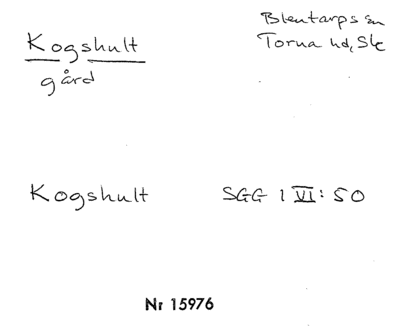 Kogshult
gård
Blentarps sn
Torna hd, Sk
Kogshult SGG 1 VI: 50
Nr 15976